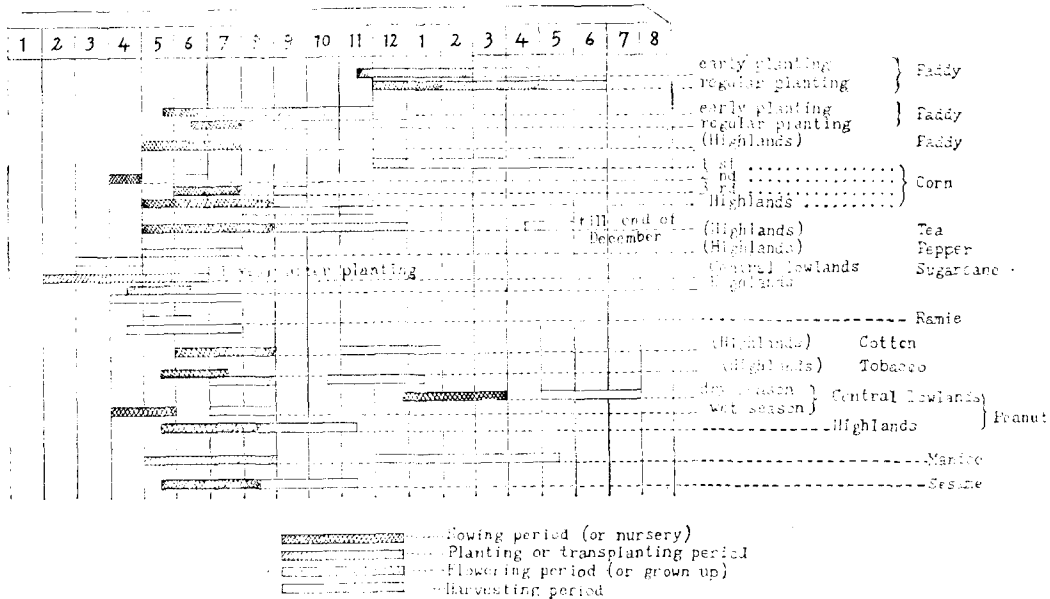 1 2 3 4 5 6 7 8 9 10 11 12 1 2 3 4 5 6 7 8
early planting
regular planting } Paddy
early planting
regular planting } Paddy
(Highlands) Paddy
1 st
2 nd
3 rd } Corn
Highlands
till end of
December
(Highlands) Tea
(Highlands) Pepper
after planting
Central lowlands Sugarcane
Highlands
Ramie
(Highlands) Cotten
(Highlands) Tobacco
dry season
wet season } Central lowlands
Highlands } Peanut
Manioc
Sesame
Sowing period (or nursery)
Planting or transplanting period
Flowering period (or grown up)
Harvesting period